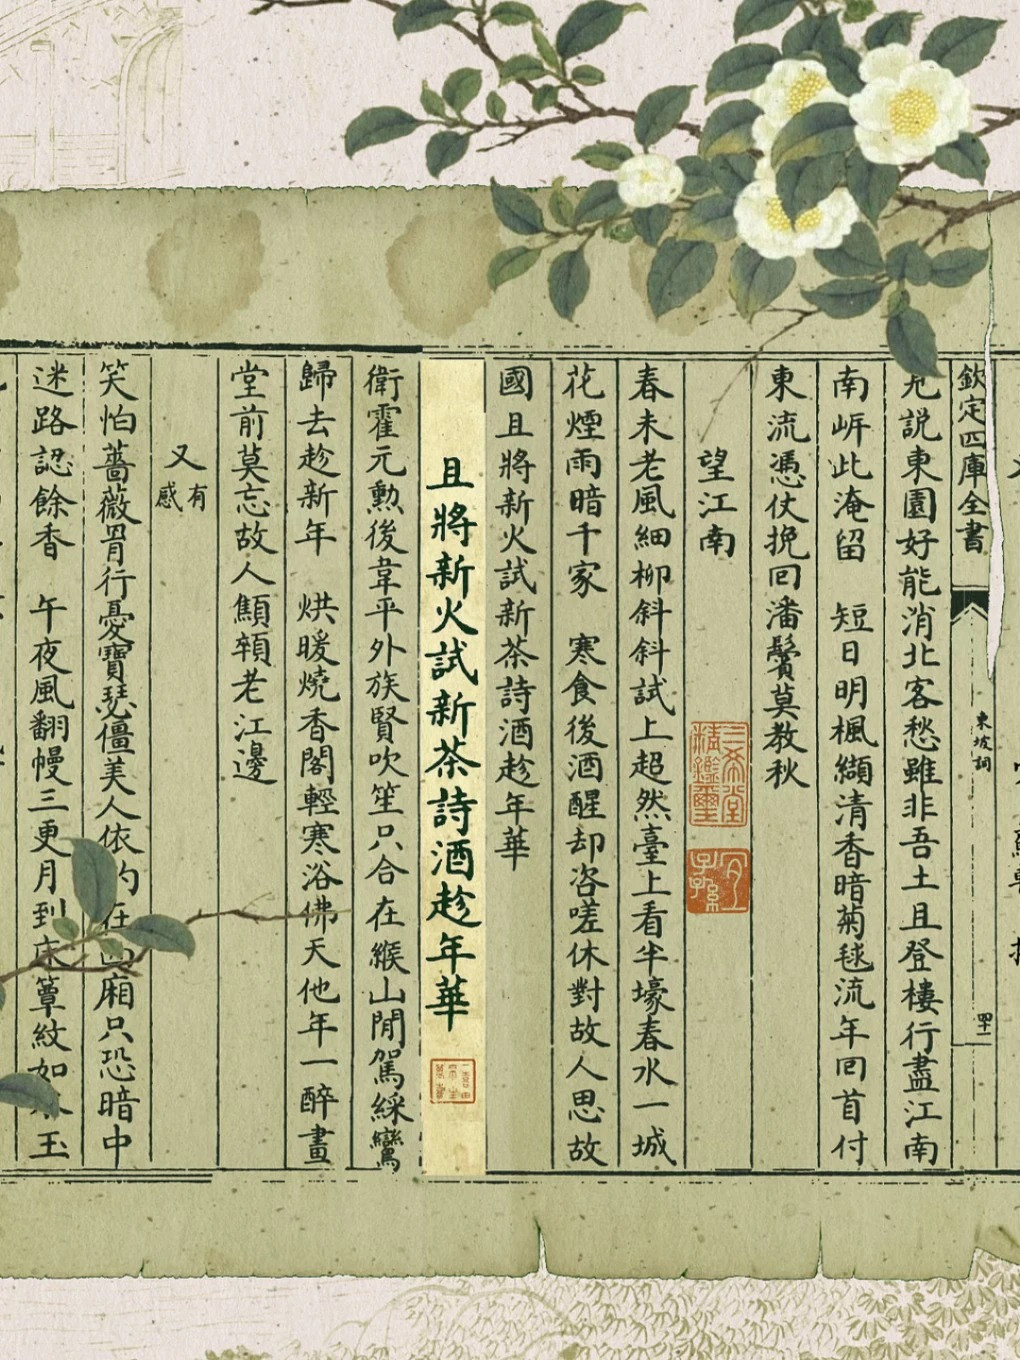 欽定四庫全書
東坡詞
見説東園好能消北客愁雖非吾土且登樓行盡江南
南岸此淹留 短日明楓纈清香暗菊毬流年回首付
東流憑仗挽回潘鬢莫教秋
望江南
三希堂精鑑璽
宜子孫
春未老風細柳斜斜試上超然臺上看半壕春水一城
花煙雨暗千家 寒食後酒醒却咨嗟休對故人思故
國且將新火試新茶詩酒趁年華
且將新火試新茶詩酒趁年華
衛霍元勲後韋平外族賢吹笙只合在緱山閒駕綵鸞
歸去趁新年 烘暖燒香閣輕寒浴佛天他年一醉畫
堂前莫忘故人顦顇老江邊
又有感
笑怕薔薇罥行憂寶瑟僵美人依約在西廂只恐暗中
迷路認餘香 午夜風翻幔三更月到床簟紋如水玉